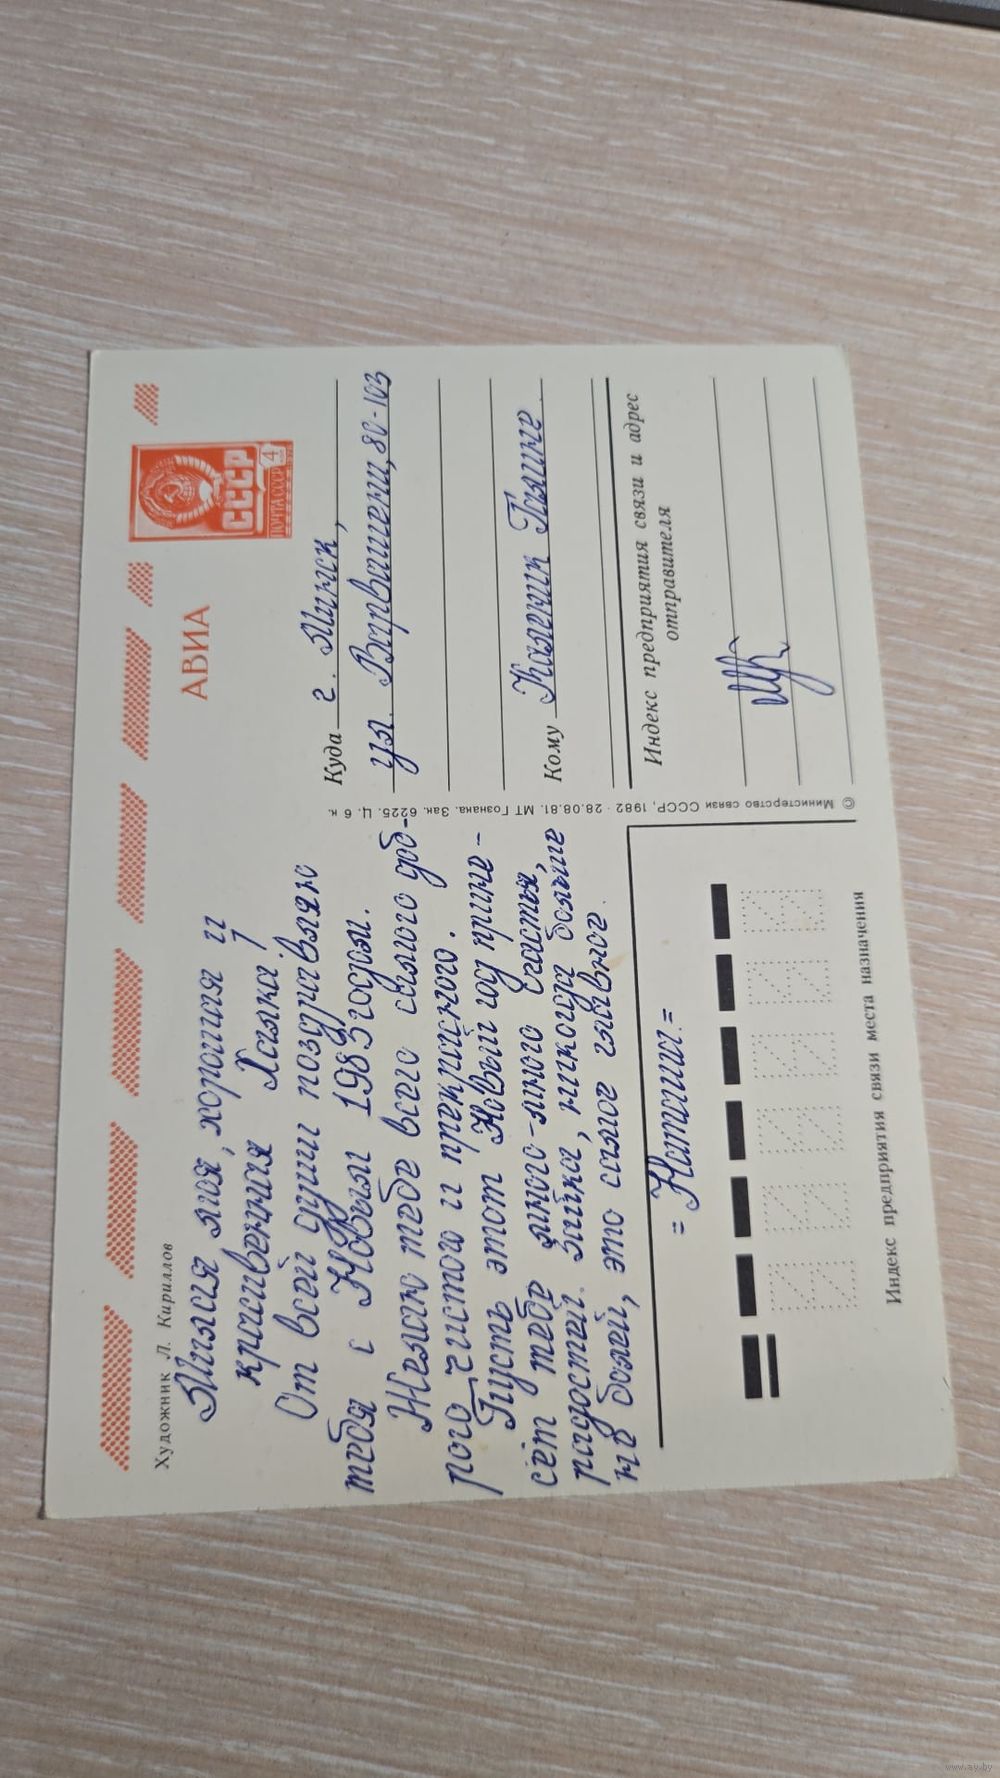 Художник Л. Кириллов
АВИА
СССР
ПОЧТА СССР 4
Милая моя, хорошая и
красивенная Халка!
От всей души поздравляю
тебя с Новым 1983 годом.
Желаю тебе всего самого доб-
рого, чистого и прекрасного.
Пусть этот Новый год прине-
сёт тебе много-много счастья,
радостей. Зайка, никогда больше
не болей, это самое главное.
= Наташа =
Куда г. Минск,
ул. Варвашени, 80-103
Кому Каленик Галине.
© Министерство связи СССР, 1982 · 28.08.81. МТ Гознака. Зак. 6225. Ц. 6 к.
Индекс предприятия связи и адрес
отправителя
Индекс предприятия связи места назначения
www.ay.by